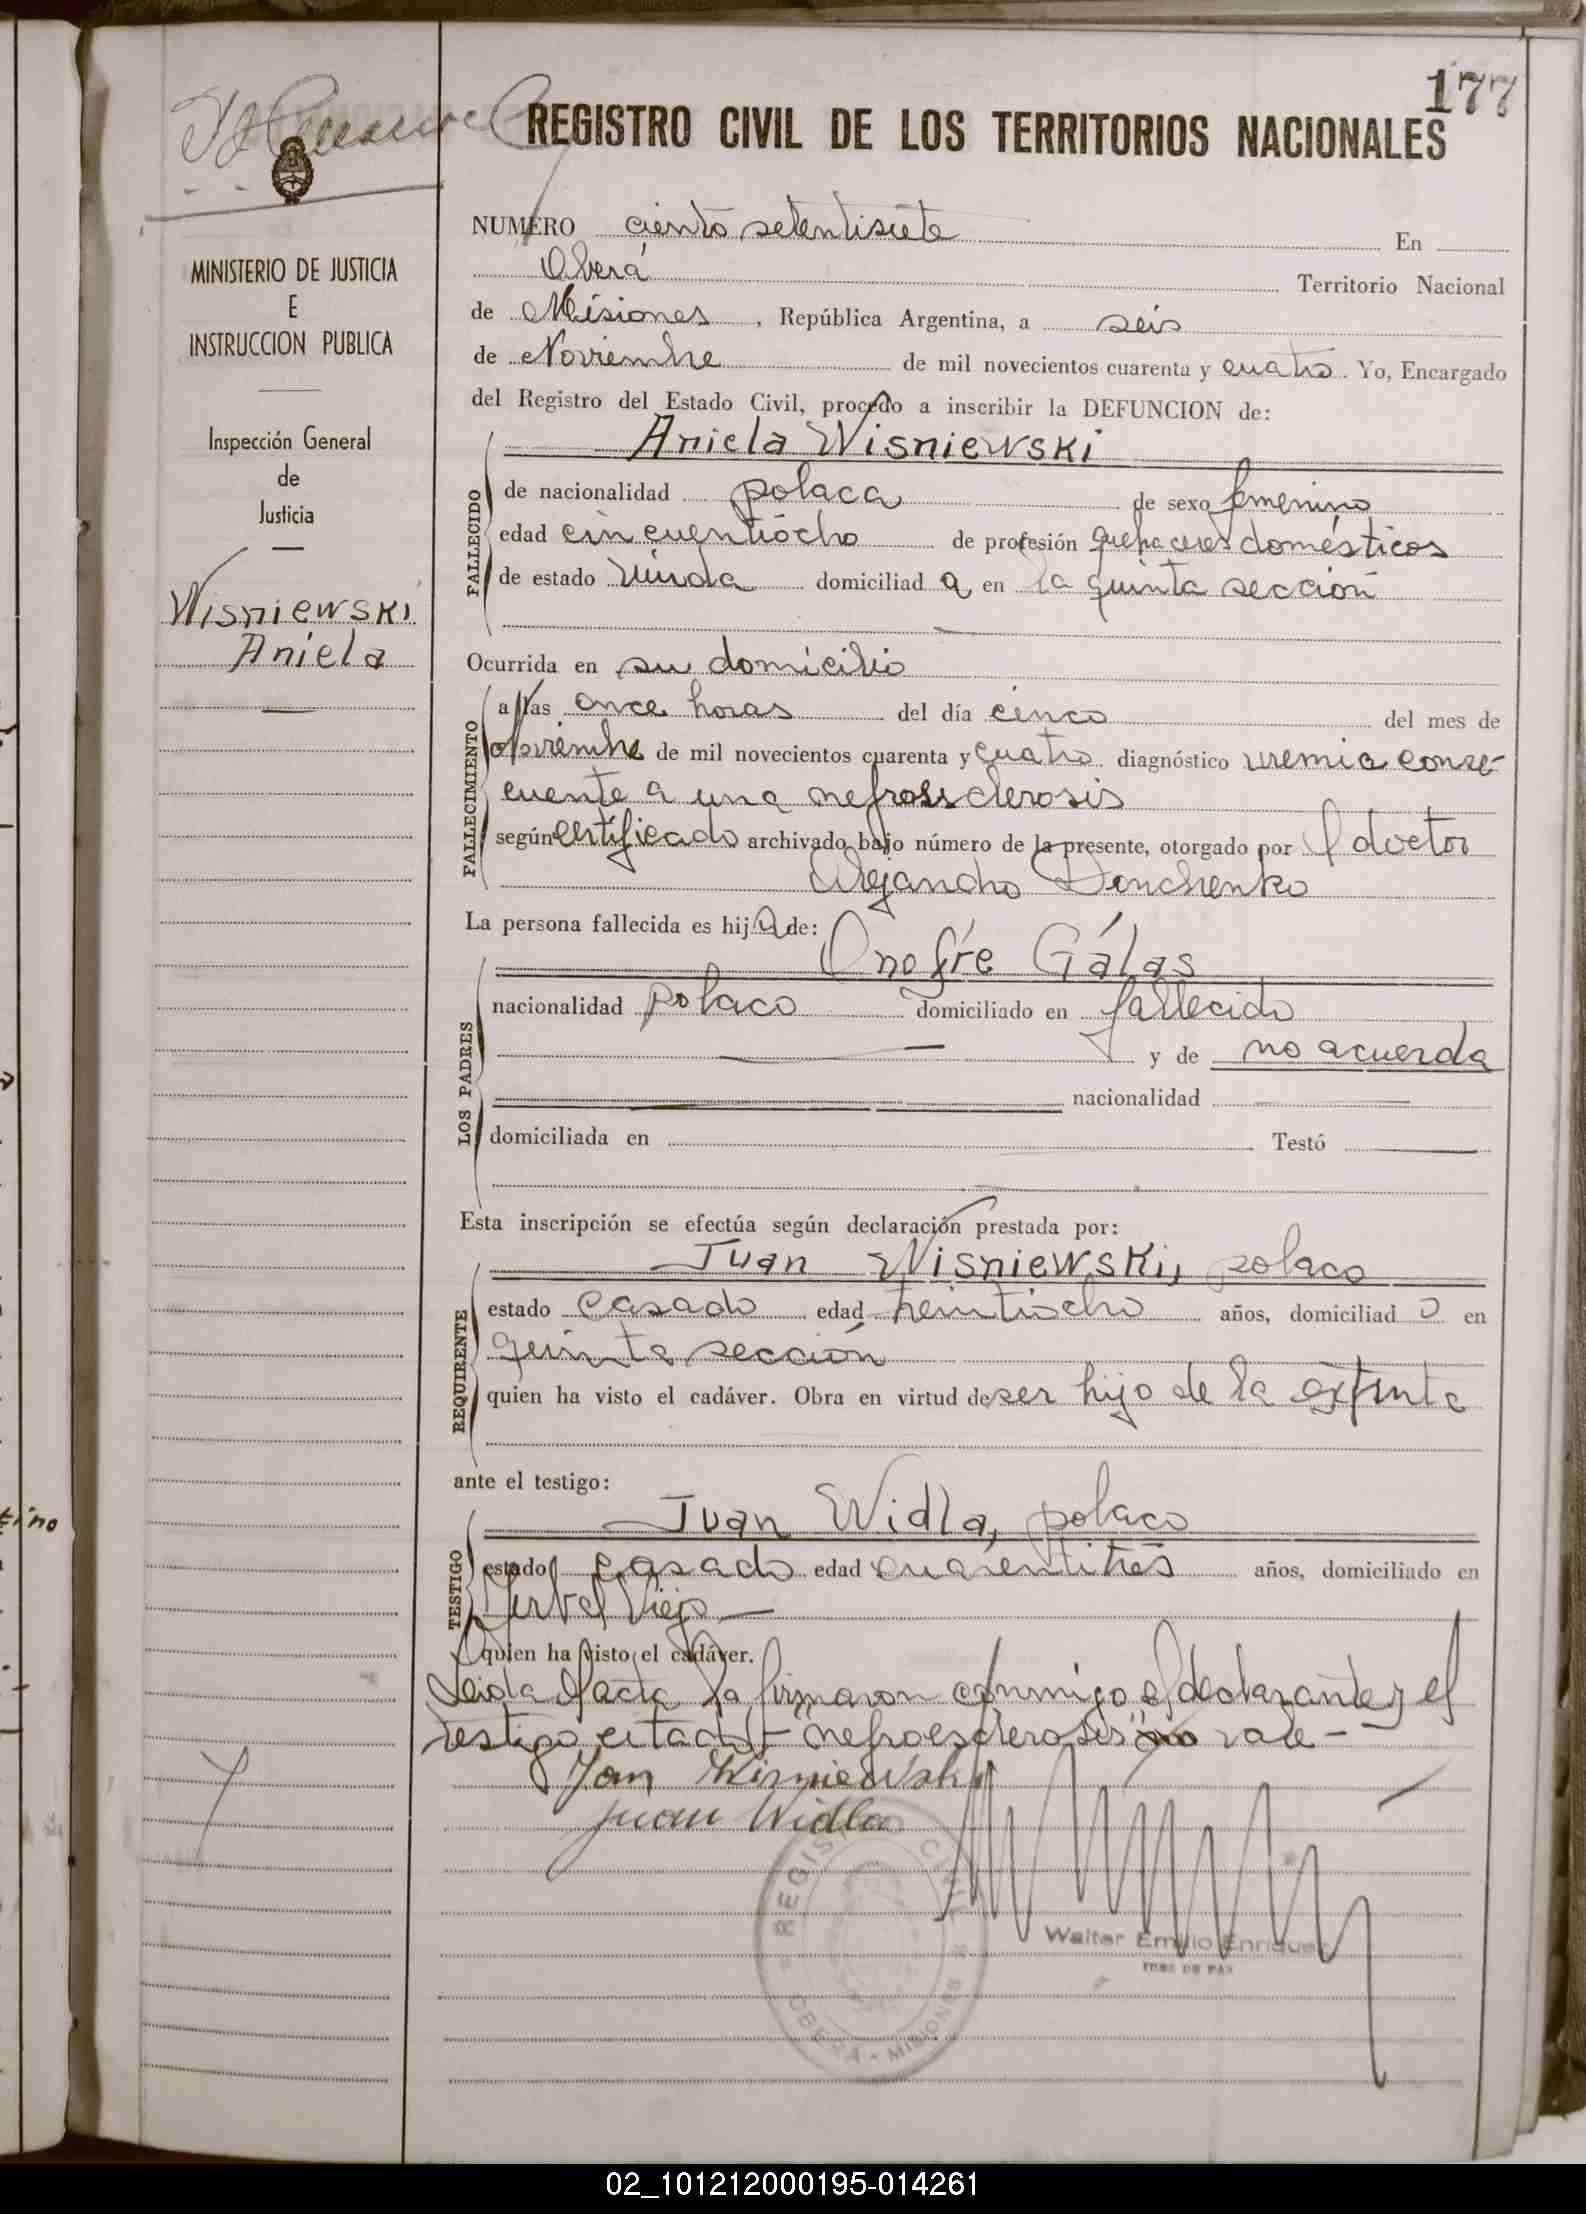 177
REGISTRO CIVIL DE LOS TERRITORIOS NACIONALES
MINISTERIO DE JUSTICIA
E
INSTRUCCION PUBLICA
Inspección General
de
Justicia
Wisniewski
Aniela
NUMERO ciento setentisiete En
Oberá Territorio Nacional
de Misiones, República Argentina, a seis
de Noviembre de mil novecientos cuarenta y cuatro. Yo, Encargado
del Registro del Estado Civil, procedo a inscribir la DEFUNCION de:
Aniela Wisniewski
FALLECIDO
de nacionalidad polaca de sexo femenino
edad cincuentiócho de profesión quehaceres domésticos
de estado viuda domiciliad a en la quinta sección
Ocurrida en su domicilio
FALLECIMIENTO
a las once horas del día cinco del mes de
Noviembre de mil novecientos cuarenta y cuatro diagnóstico uremia conse-
cuente a una
según certificado archivado bajo número de la presente, otorgado por el doctor
Alejandro Donchenko
La persona fallecida es hija de:
Onofre Gálas
LOS PADRES
nacionalidad polaco domiciliado en fallecido
y de no acuerda
nacionalidad
domiciliada en Testó
Esta inscripción se efectúa según declaración prestada por:
Juan Wisniewski, polaco
REQUIRENTE
estado casado edad treintiocho años, domiciliad o en
quinta sección
quien ha visto el cadáver. Obra en virtud de ser hijo de la extinta
ante el testigo:
Juan Widla, polaco
TESTIGO
estado casado edad cuarentitrés años, domiciliado en
Yerbal Viejo
quien ha visto el cadáver.
Leida el acta la firmaron conmigo el declarante y el
testigo citado- "nefroesclerosis" vale-
Jan Wisniewski
Juan Widla
REGISTRO CIVIL
OBERA - MISIONES
Walter Emilio Enriquez
JUEZ DE PAZ
02_101212000195-014261